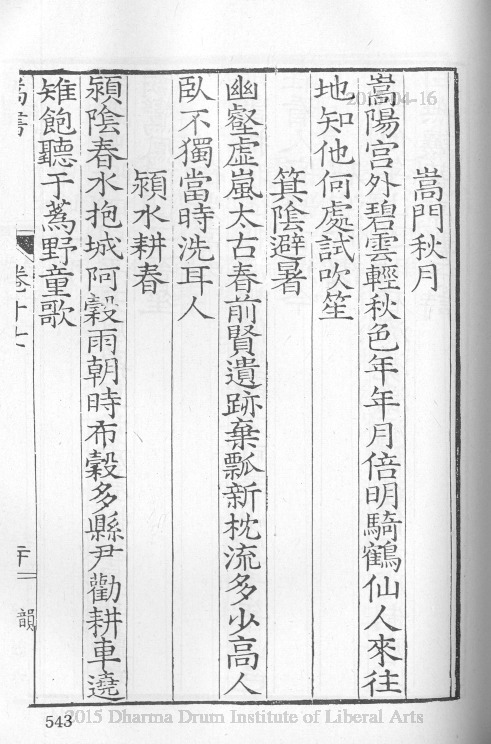 嵩門秋月
嵩陽宫外碧雲輕秋色年年月倍明騎鶴仙人來往
地知他何處試吹笙
箕陰避暑
幽壑虛嵐太古春前賢遺跡棄瓢新枕流多少高人
臥不獨當時洗耳人
潁水耕春
潁陰春水抱城阿穀雨朝時布穀多縣尹勸耕車遶
雉飽聽于蔿野童歌
嵩書
卷十七
二十
韻
543
2015-04-16
2015 Dharma Drum Institute of Liberal Arts